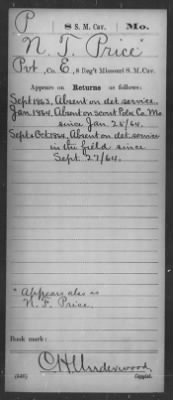 P 8 S.M. Cav. Mo.
N. T. Price*
Pvt, Co. E, 8 Reg't Missouri S. M. Cav.
Appears on Returns as follows:
Sept 1863, Absent on det. service.
Jan 1864, Absent on scout Polk Co. Mo
since Jan. 25/64.
Sept & Oct 1864, Absent on det. service
in the field since
Sept. 27/64.
* Appears also as
N. F. Price.
Book mark:
C. H. Underwood
(546) Copyist.